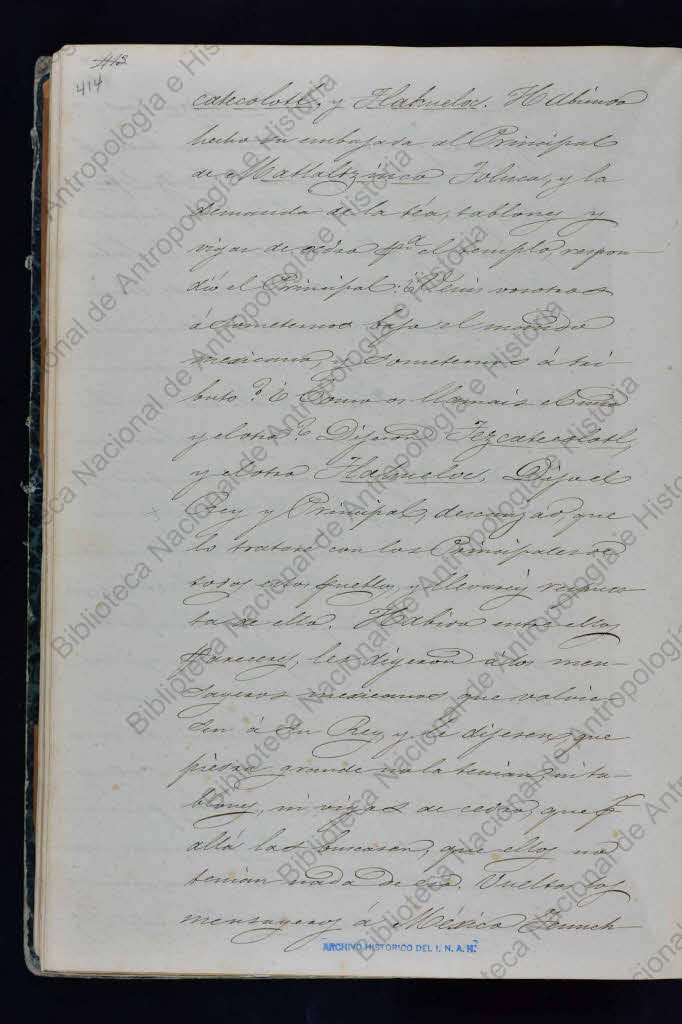 413
414
catecolotl, y Tlahueloc. Habiendo
hecho su embajada al Principal
de Matlaltzinco Toluca, y la
demanda de la téa, tablones y
vigas de cedro pª el templo, respon-
dió el Principal: ¿Venís vosotros
á someternos bajo el mando
mexicano, y someternos á tri
buto? ¿Como os llamais el uno
y el otro? Dijeron Tezcatecolotl,
y el otro Tlahueloc. Dijo el
Rey y Principal, descanzad, que
lo trataré con los Principales de
todos estos pueblos, y llevareis respues
ta de ello. Habido entre ellos
pareceres, les digeron a los men-
sageros mexicanos que volvie
sen á su Rey y le dijesen, que
piedra grande no la tenian, ni ta-
blones, ni vigas de cedro, que
allá las buscasen, que ellos no
tenian nada de eso. Vueltos los
mensageros á México Tenuch-
ARCHIVO HISTORICO DEL I. N. A. H.
Biblioteca Nacional de Antropología e Historia